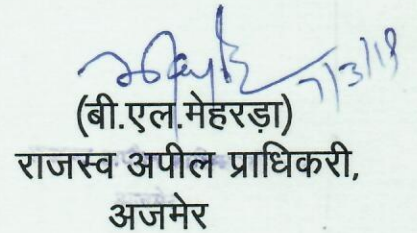 7/3/18
(बी.एल.मेहरड़ा)
राजस्व अपील प्राधिकरी,
अजमेर